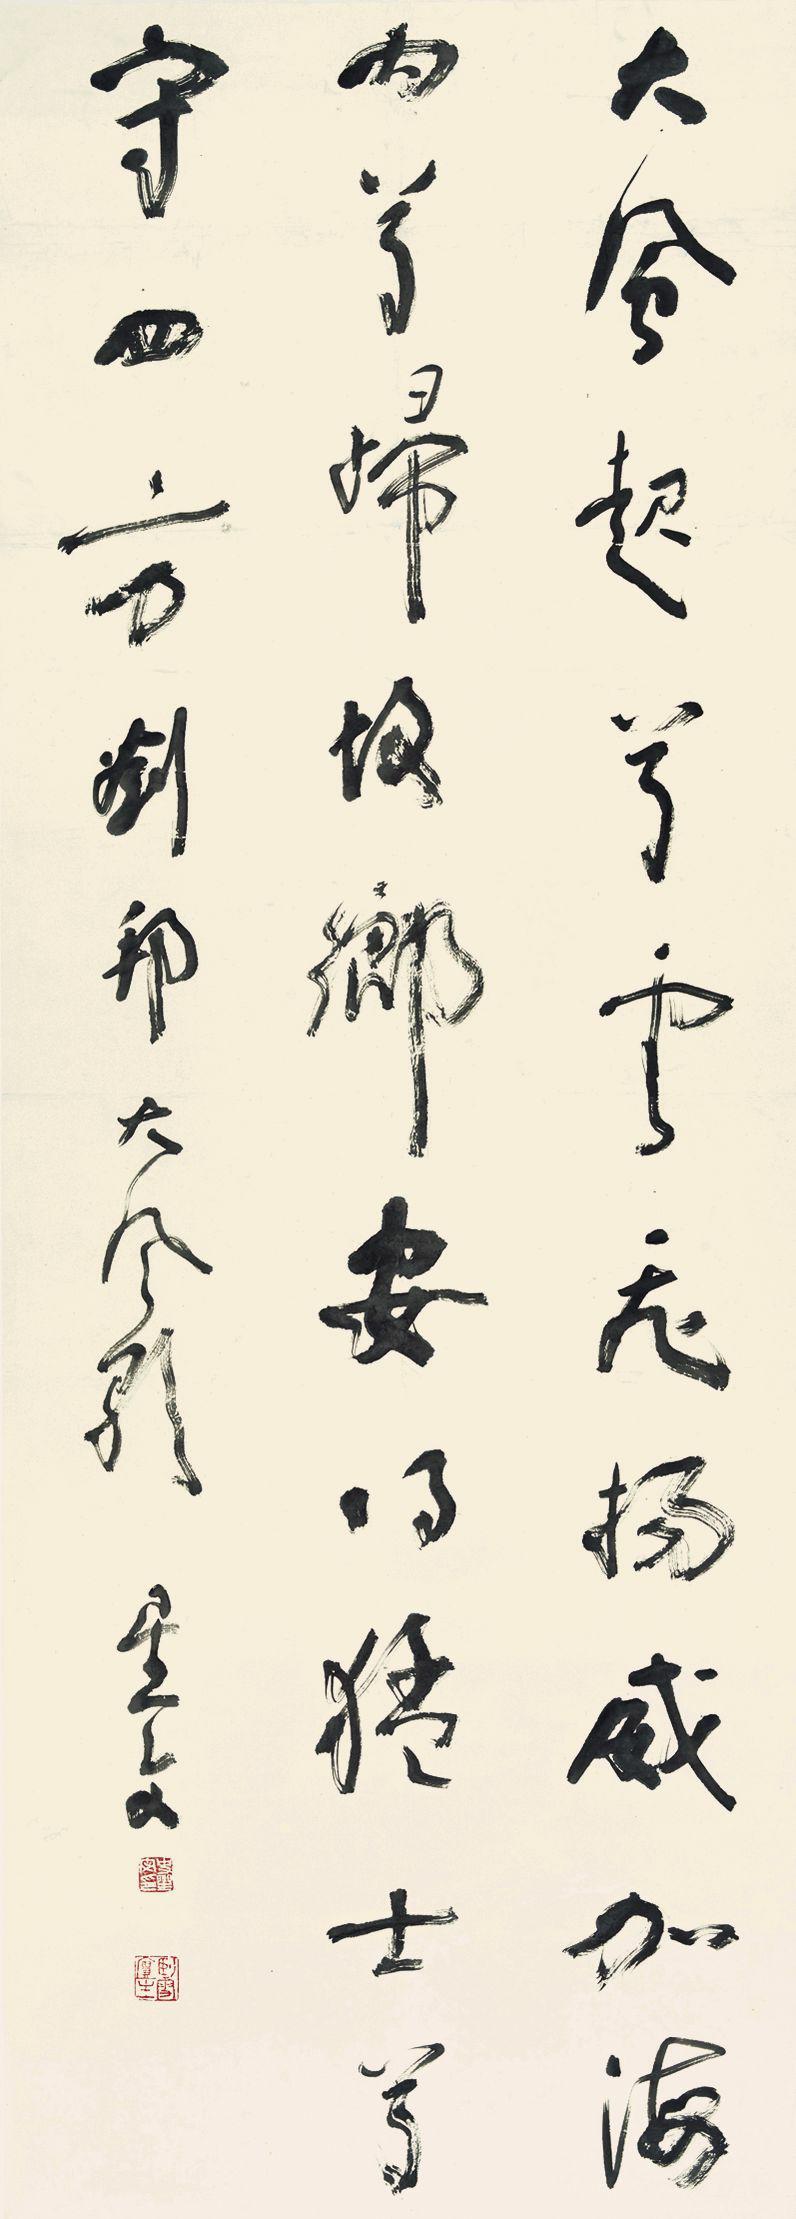 大風起兮雲飛揚威加海
内兮歸故鄉安得猛士兮
守四方劉邦大風歌 星文